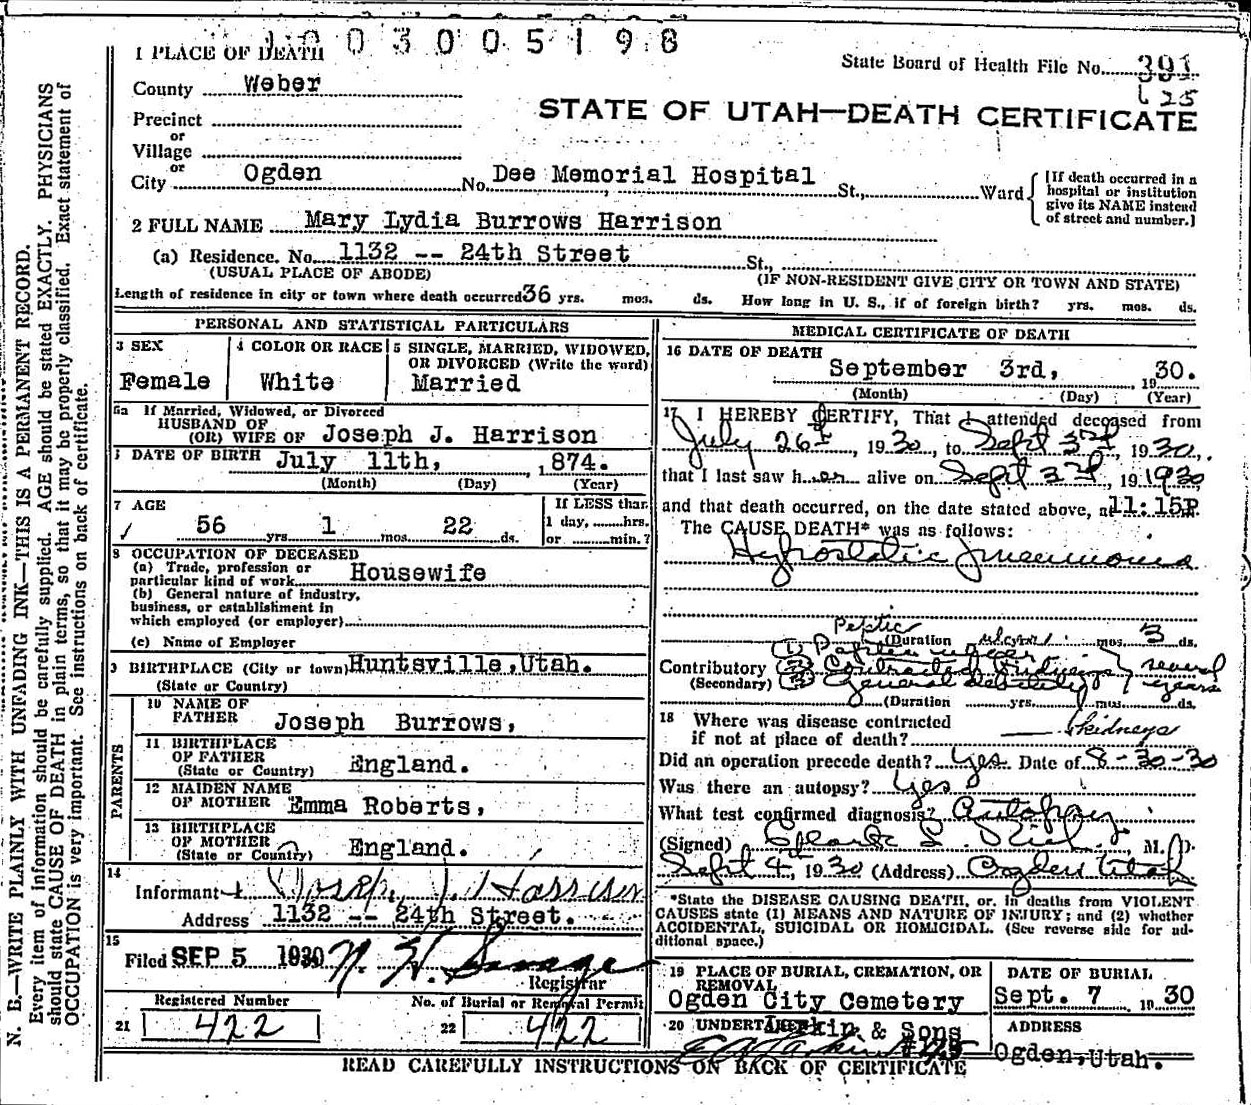 3 0 0 5 1 9 8
1 PLACE OF DEATH
State Board of Health File No. 391
County Weber
STATE OF UTAH—DEATH CERTIFICATE
Precinct
or
Village
or
City Ogden No. Dee Memorial Hospital St., Ward
[If death occurred in a hospital or institution give its NAME instead of street and number.]
2 FULL NAME Mary Lydia Burrows Harrison
(a) Residence. No. 1132 -- 24th Street St.,
(USUAL PLACE OF ABODE) (IF NON-RESIDENT GIVE CITY OR TOWN AND STATE)
Length of residence in city or town where death occurred 36 yrs. mos. ds. How long in U. S., if of foreign birth? yrs. mos. ds.
PERSONAL AND STATISTICAL PARTICULARS
3 SEX
Female
4 COLOR OR RACE
White
5 SINGLE, MARRIED, WIDOWED,
OR DIVORCED (Write the word)
Married
5a If Married, Widowed, or Divorced
HUSBAND OF
(OR) WIFE OF Joseph J. Harrison
DATE OF BIRTH July 11th, 1874.
(Month) (Day) (Year)
7 AGE
56 yrs. 1 mos. 22 ds.
If LESS than
1 day, hrs.
or min.?
8 OCCUPATION OF DECEASED
(a) Trade, profession or
particular kind of work Housewife
(b) General nature of industry,
business, or establishment in
which employed (or employer)
(c) Name of Employer
9 BIRTHPLACE (City or town) Huntsville, Utah.
(State or Country)
PARENTS
10 NAME OF
FATHER Joseph Burrows,
11 BIRTHPLACE
OF FATHER
(State or Country) England.
12 MAIDEN NAME
OF MOTHER Emma Roberts,
13 BIRTHPLACE
OF MOTHER
(State or Country) England.
14
Informant Joseph J. Harrison
Address 1132 -- 24th Street.
15
Filed SEP 5 1930 N. H. Savage
Registrar
Registered Number
21 422
No. of Burial or Removal Permit
22 422
MEDICAL CERTIFICATE OF DEATH
16 DATE OF DEATH
September 3rd, 1930.
(Month) (Day) (Year)
17 I HEREBY CERTIFY, That I attended deceased from
July 26th, 1930, to Sept 3rd, 1930,
that I last saw her alive on Sept 3rd, 19 1930
and that death occurred, on the date stated above, at 11:15P
The CAUSE DEATH* was as follows:
Hypostatic Pneumonia
Peptic
(Duration ulcer mos. 3 ds.
Contributory (1) Peptic ulcer
(Secondary) (2) Contracted kidneys
(3) General debility
several
years
(Duration yrs. mos. ds.
18 Where was disease contracted
if not at place of death? kidneys
Did an operation precede death? Yes Date of 8-30-30
Was there an autopsy? Yes
What test confirmed diagnosis? Autopsy
(Signed) , M. D.
Sept 4th, 1930 (Address) Ogden Utah
*State the DISEASE CAUSING DEATH, or, in deaths from VIOLENT
CAUSES state (1) MEANS AND NATURE OF INJURY; and (2) whether
ACCIDENTAL, SUICIDAL OR HOMICIDAL. (See reverse side for ad-
ditional space.)
19 PLACE OF BURIAL, CREMATION, OR
REMOVAL
Ogden City Cemetery
DATE OF BURIAL
Sept. 7 1930
20 UNDERTAKER Larkin & Sons
ADDRESS
Ogden, Utah.
READ CAREFULLY INSTRUCTIONS ON BACK OF CERTIFICATE
N. B.—WRITE PLAINLY WITH UNFADING INK—THIS IS A PERMANENT RECORD.
Every item of information should be carefully supplied. AGE should be stated EXACTLY. PHYSICIANS
should state CAUSE OF DEATH in plain terms, so that it may be properly classified. Exact statement of
OCCUPATION is very important. See instructions on back of certificate.